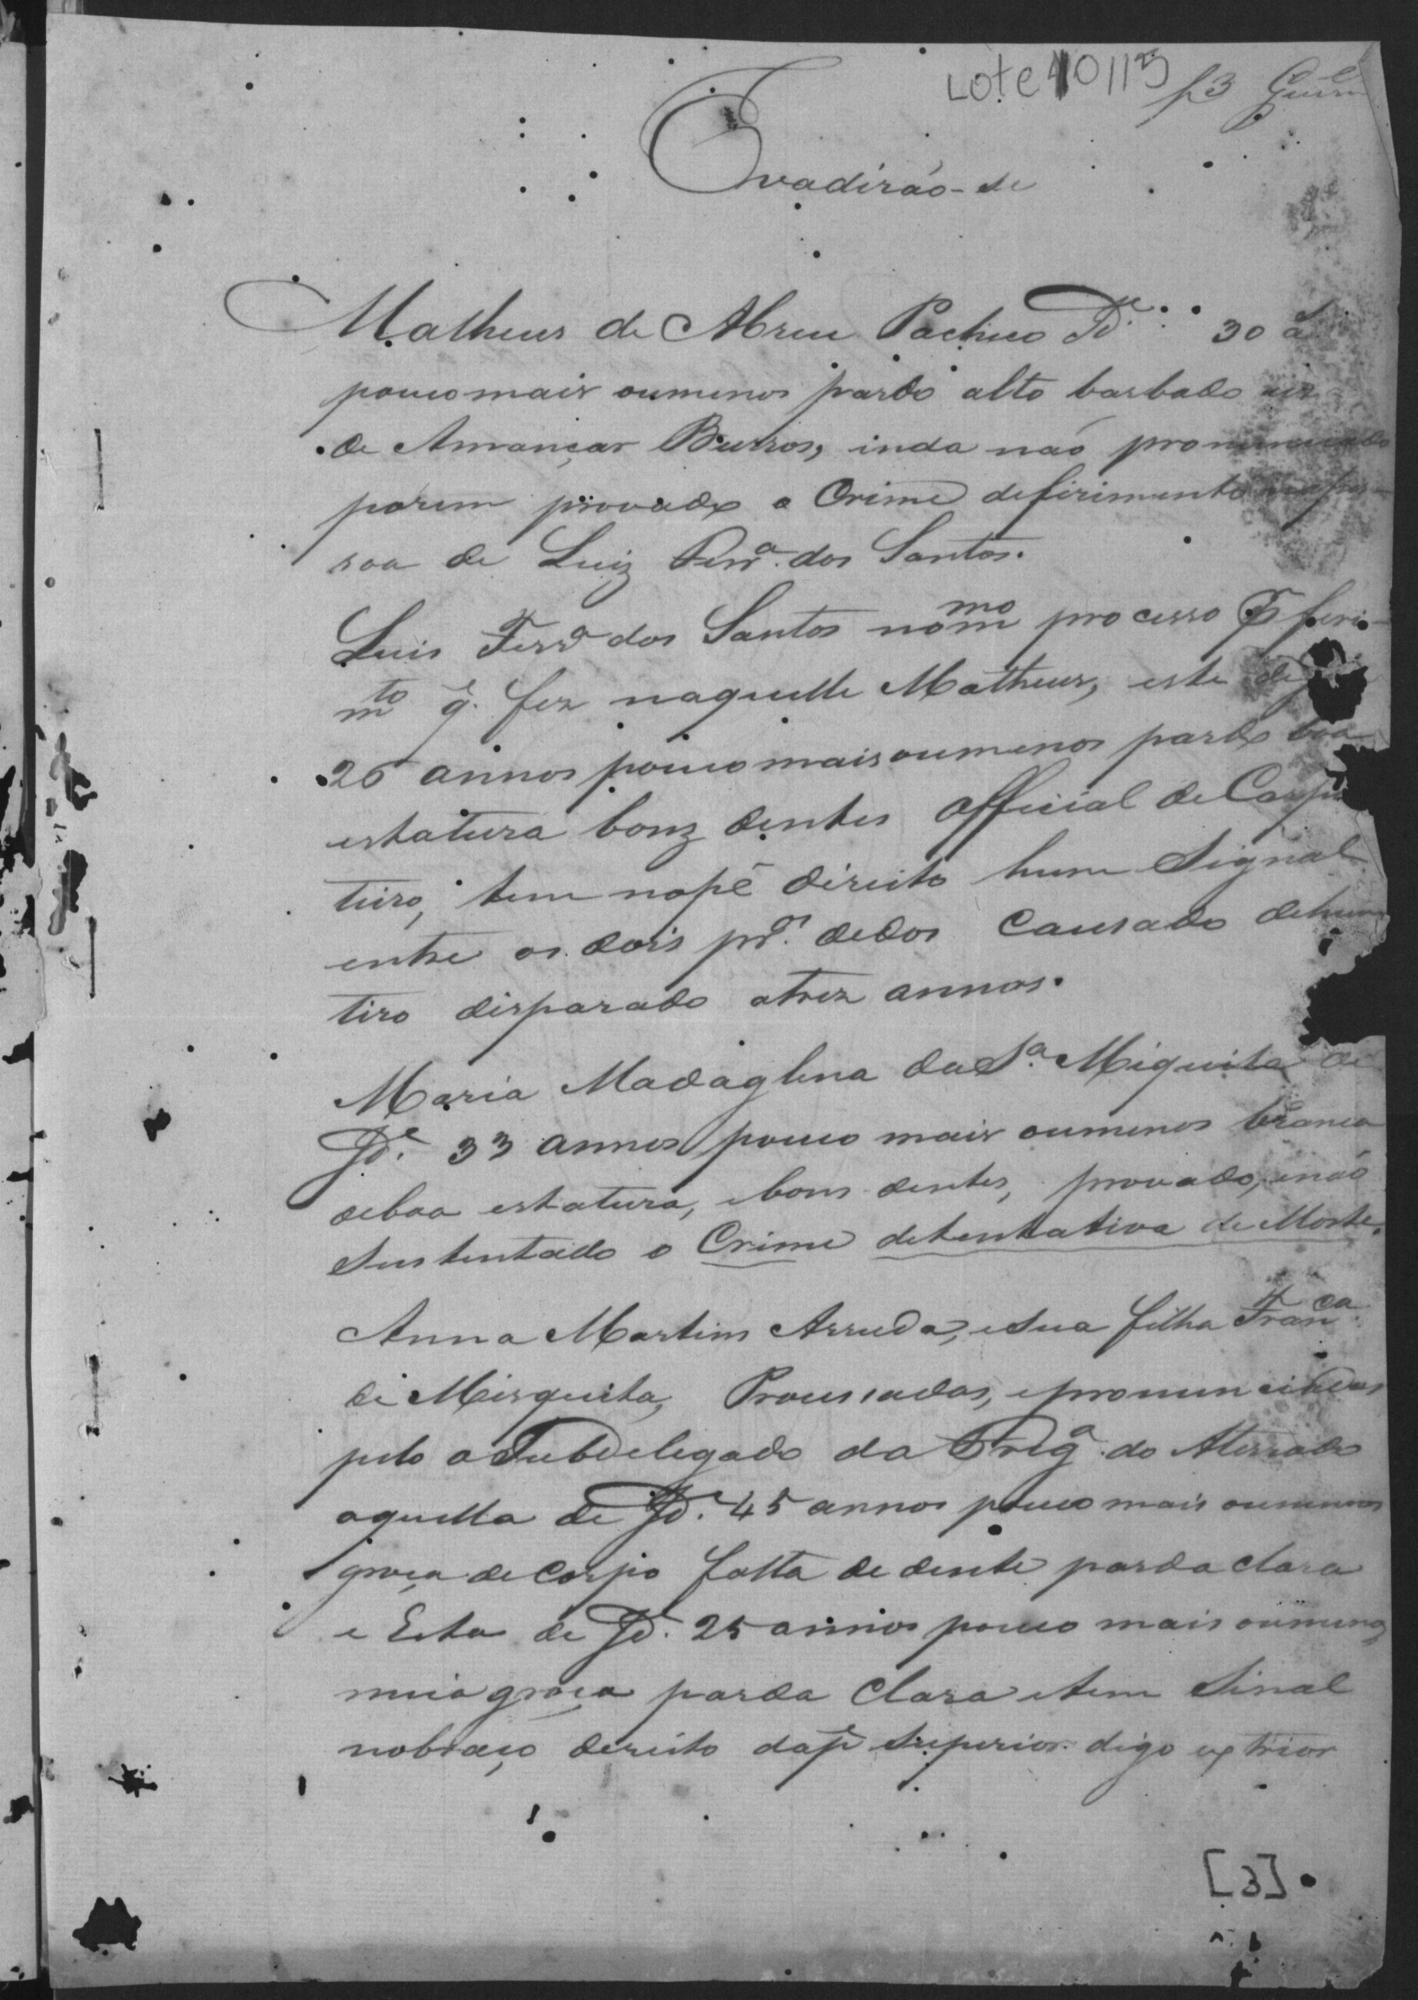 Lote 10113
f 3
Evadirão-se
Matheus de Abreu Pacheco Id.e 30 a
pouco mais oumenos pardo alto barbado
de Amançar Burros, inda não pronunciado
porem provado o Crime deferimento napes-
soa de Luiz Ferr.a dos Santos.
Luis Ferr.a dos Santos nommo processo feri-
mto q.e fez naquelle Matheus, este de
26 annos pouco mais oumenos pardo boa
estatura bonz dentes official de Carpin
teiro, tem nopé direito hum Signal
entre os dois pr.os dedos Causado dehum
tiro disparado atrez annos.
Maria Madaglena da S.a Miquita de
Id.e 33 annos pouco mais oumenos branca
deboa estatura, ebons dentes, provado, enão
Sustentado o Crime detentativa de Morte.
Anna Martins Arruda, esua filha Franca
de Misquita, Processadas, epronunciadas
pelo o Subdelegado da Freg.a do Aterrado
aquella de Id.e 45 annos pouco mais oumenos
groça de Corpo falta de dente parda clara
e Esta de Id.e 25 annos pouco mais oumenos
meia groça parda Clara etem Sinal
nobraço dereito dap.e Superior digo extrior
[3]